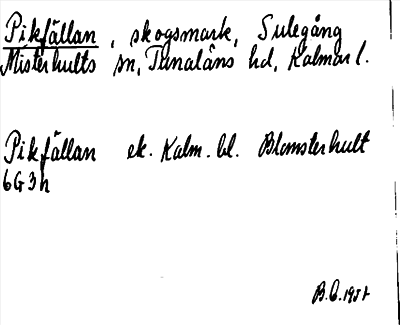 Pikfällan, skogsmark, Sulegång
Misterhults sn, Tunaläns hd, Kalmar l.
Pikfällan ek. Kalm. bl. Blomsterhult
6G3h